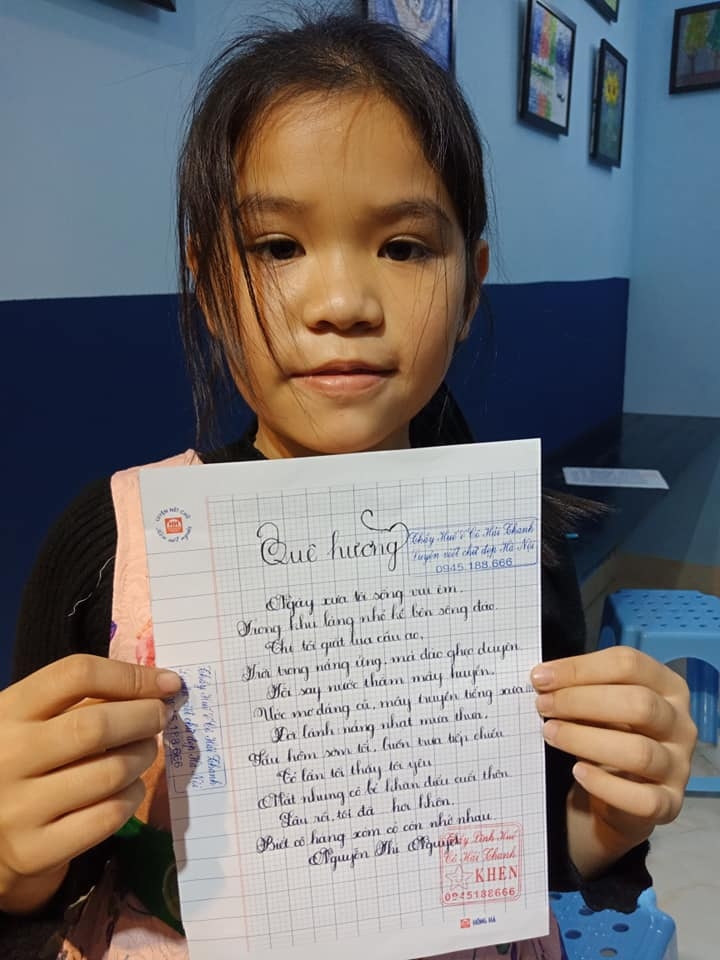 LUYỆN NÉT CHỮ
Quê hương
Thầy Huế & Cô Hải Thanh
Luyện viết chữ đẹp Hà Nội
0945.188.666
Ngày xưa tôi sống vui êm,
Trong khu làng nhỏ kề bên sông đào.
Chị tôi giặt lụa cầu ao,
trong nắng ửng, má đào duyên
say nước thắm mây huyền,
Ước mơ dáng cả, mây truyền tiếng xưa...
lánh nắng nhạt mưa thưa,
Sầu hôm sớm tới, buồn trưa tiếp chiều
Có lần tôi thấy tôi yêu
Mắt nhung cô bé khăn điều cuối thôn
Lâu rồi, tôi đã hơi
Biết cô hàng xóm có còn nhớ nhau
Nguyễn Thị Nguyệt
Thầy Huế & Cô Hải Thanh
Thầy Linh Huế
Cô Hải Thanh
KHEN
0945188666
HỒNG HÀ